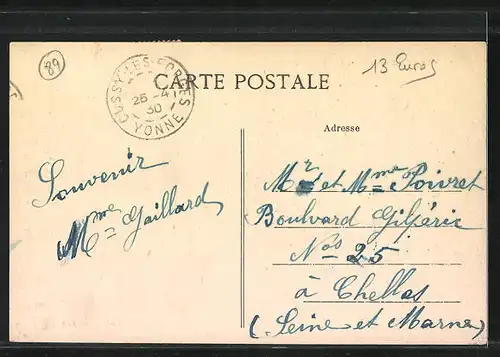 89
13 Euros
CUSSY-LES-FORGES
25 -4
30
YONNE
CARTE POSTALE
Adresse
Souvenir
Mme Gaillard
Mr et Mme Poivret
Boulvard Gilpéric
Nos 25
à Chellas
(Seine et Marne)